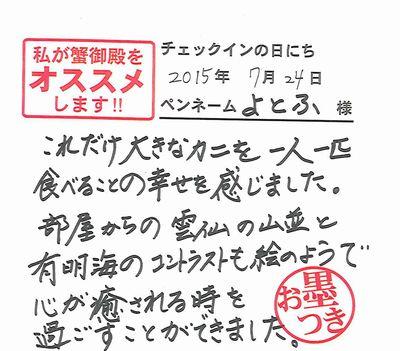 私が蟹御殿を
オススメ
します!!
チェックインの日にち
2015年 7月24日
ペンネーム よとふ 様
これだけ大きなカニを一人一匹
食べることの幸せを感じました。
部屋からの雲仙の山並と
有明海のコントラストも絵のようで
心が癒される時を
過ごすことができました。
お墨つき